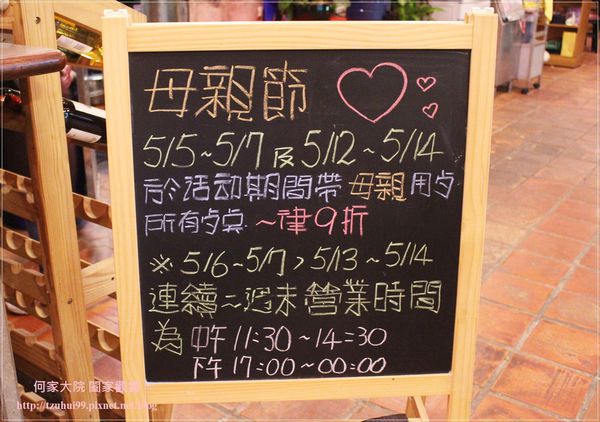 母親節
5/5~5/7及5/12~5/14
於活动期間帶母親用歺
所有歺点一律9折
※5/6~5/7,5/13~5/14
連續二週末營業時間
為中午11:30~14:30
下午17:00~00:00
何家大院 闔家觀
http://tzuhui99.pixnet.net/blog